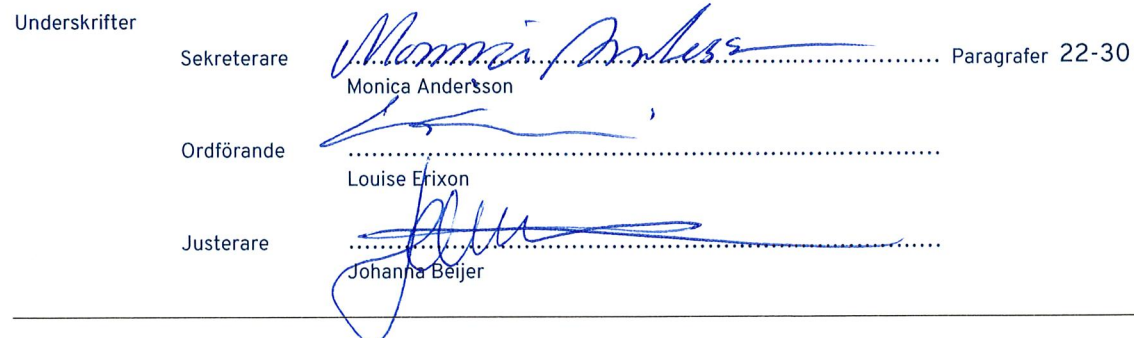 Underskrifter
Sekreterare Paragrafer 22-30
Monica Andersson
Ordförande
Louise Erixon
Justerare
Johanna Beijer